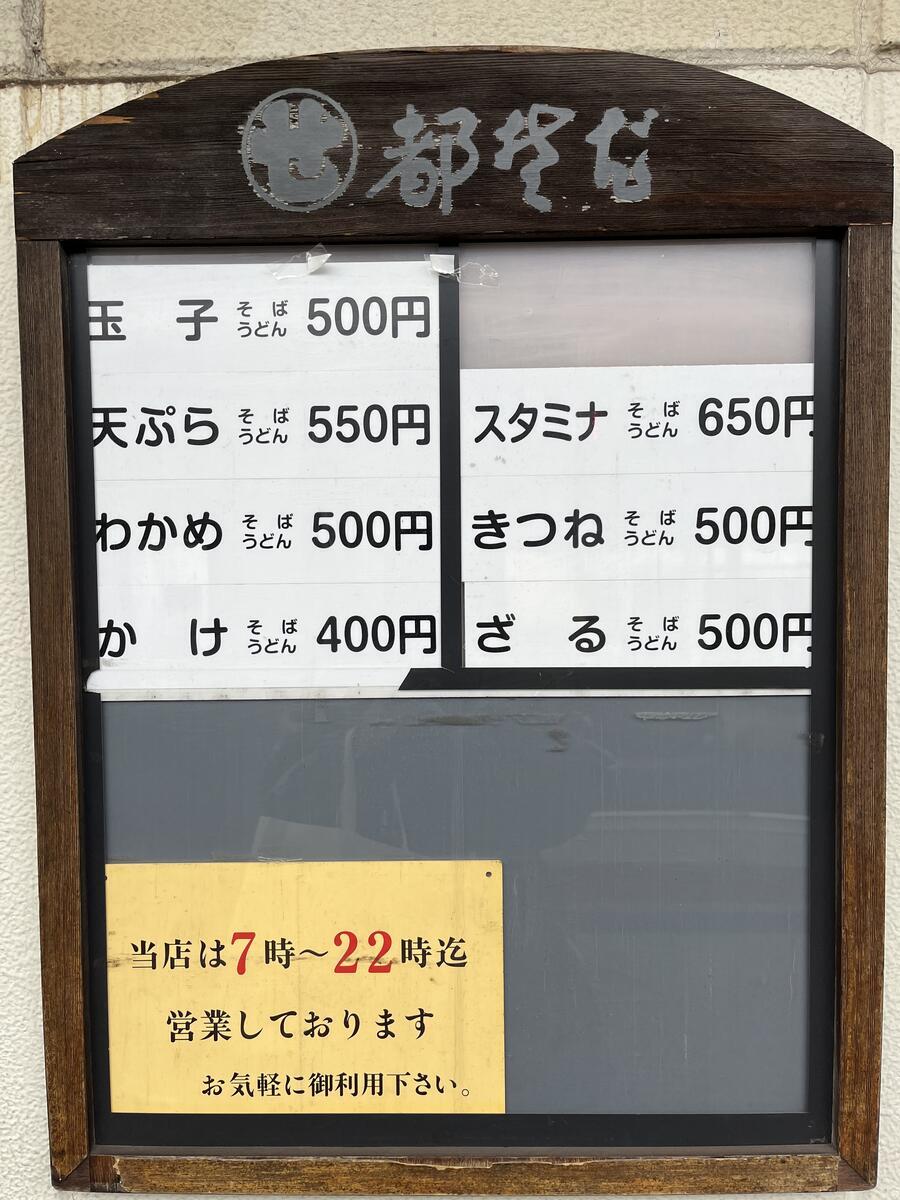 せ 都そば
玉子 そば うどん 500円
天ぷら そば うどん 550円
わかめ そば うどん 500円
かけ そば うどん 400円
スタミナ そば うどん 650円
きつね そば うどん 500円
ざる そば うどん 500円
当店は7時〜22時迄
営業しております
お気軽に御利用下さい。